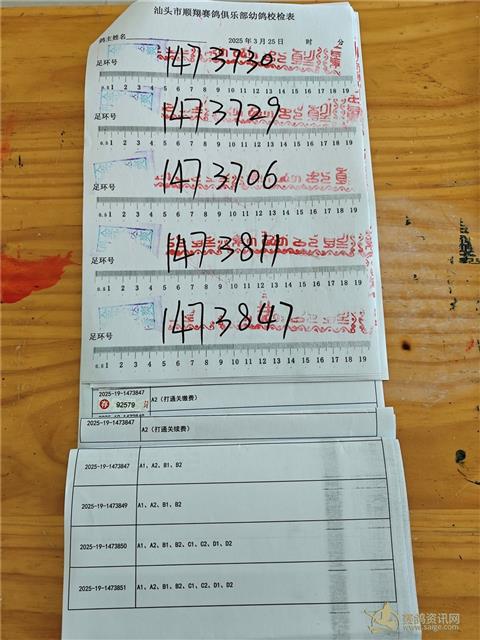 汕头市顺翔赛鸽俱乐部幼鸽校检表
鸽主姓名 2025年3月25日 时 分
足环号 1473730
0.51 2 3 4 5 6 7 8 9 10 11 12 13 14 15 16 17 18 19
足环号 1473729
0.51 2 3 4 5 6 7 8 9 10 11 12 13 14 15 16 17 18 19
足环号 1473706
0.51 2 3 4 5 6 7 8 9 10 11 12 13 14 15 16 17 18 19
足环号 1473811
0.51 2 3 4 5 6 7 8 9 10 11 12 13 14 15 16 17 18 19
足环号 1473847
0.51 2 3 4 5 6 7 8 9 10 11 12 13 14 15 16 17 18 19
2025-19-1473847
92579 A2（打通关缴费）
2025-19-1473847 A2（打通关续费）
2025-19-1473847 A1、A2、B1、B2
2025-19-1473849 A1、A2、B1、B2
2025-19-1473850 A1、A2、B1、B2、C1、C2、D1、D2
2025-19-1473851 A1、A2、B1、B2、C1、C2、D1、D2
赛鸽资讯网
www.saige.com